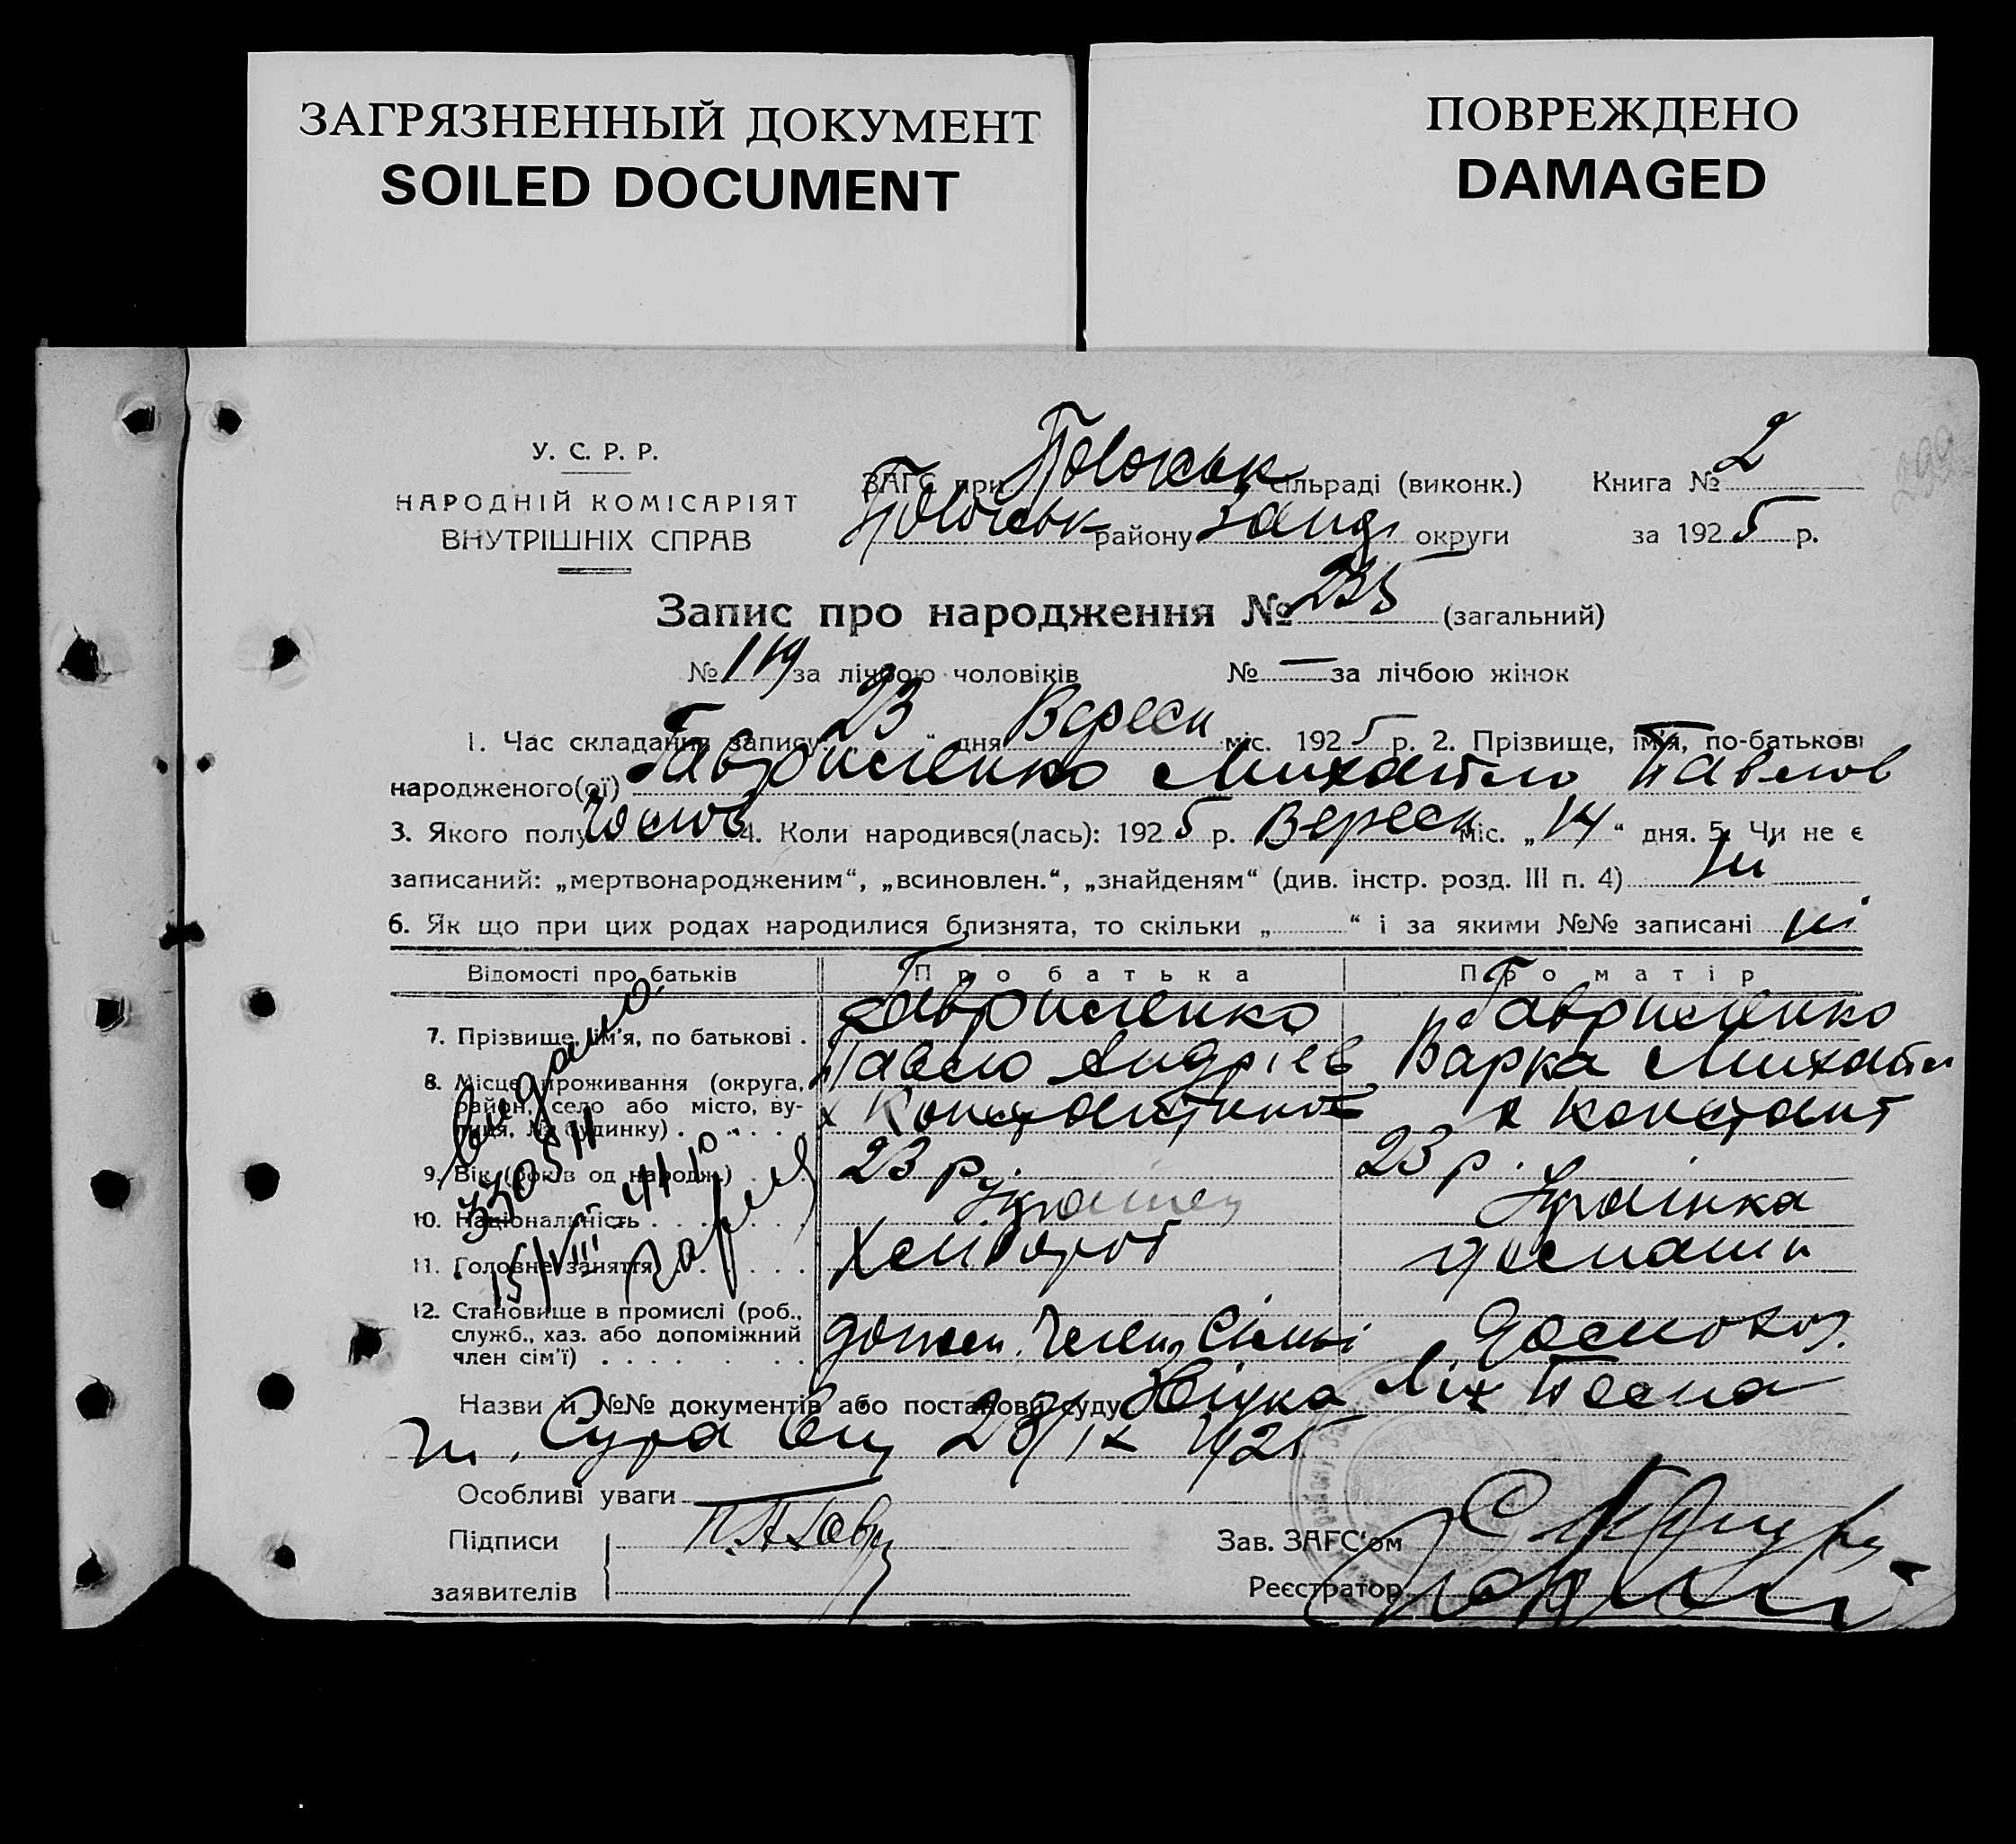 ЗАГРЯЗНЕННЫЙ ДОКУМЕНТ
SOILED DOCUMENT
ПОВРЕЖДЕНО
DAMAGED
У. С. Р. Р.
НАРОДНІЙ КОМІСАРІЯТ
ВНУТРІШНІХ СПРАВ
ЗАГС при сільраді (виконк.)
району Запор округи
Книга № 2
за 1925 р.
299
Запис про народження № 235 (загальний)
№ 119 за лічбою чоловіків № — за лічбою жінок
1. Час складання запису: 23 " дня Вересн міс. 1925 р. 2. Прізвище, ім'я, по-батькові
народженого(ої) Гавриленко Михайло Павлов
3. Якого полу Чолов 4. Коли народився(лась): 1925 р. Вересн міс. „14" дня. 5. Чи не є
записаний: „мертвонародженим", „всиновлен.", „знайденям" (див. інстр. розд. III п. 4) ні
6. Як що при цих родах народилися близнята, то скільки „ " і за якими №№ записані ні
Відомості про батьків Про батька Про матір
7. Прізвище, ім'я, по батькові . Гавриленко Гавриленко
Павло Андріев Варка Михайл
8. Місце проживання (округа, район, село або місто, вулиця, № будинку) х Константинов х Констант
9. Вік (років од народж.) 23 р. 23 р.
10. Національність Українец Українка
11. Головне заняття Хлібороб
12. Становище в промислі (роб., служб., хаз. або допоміжний член сім'ї) член Сімьі
Видано
15/VIII 41
Назви й №№ документів або постанови суду
1925
Особливі уваги —
Підписи
заявителів
П. А. Гавр
Зав. ЗАГС'ом
Реєстратор